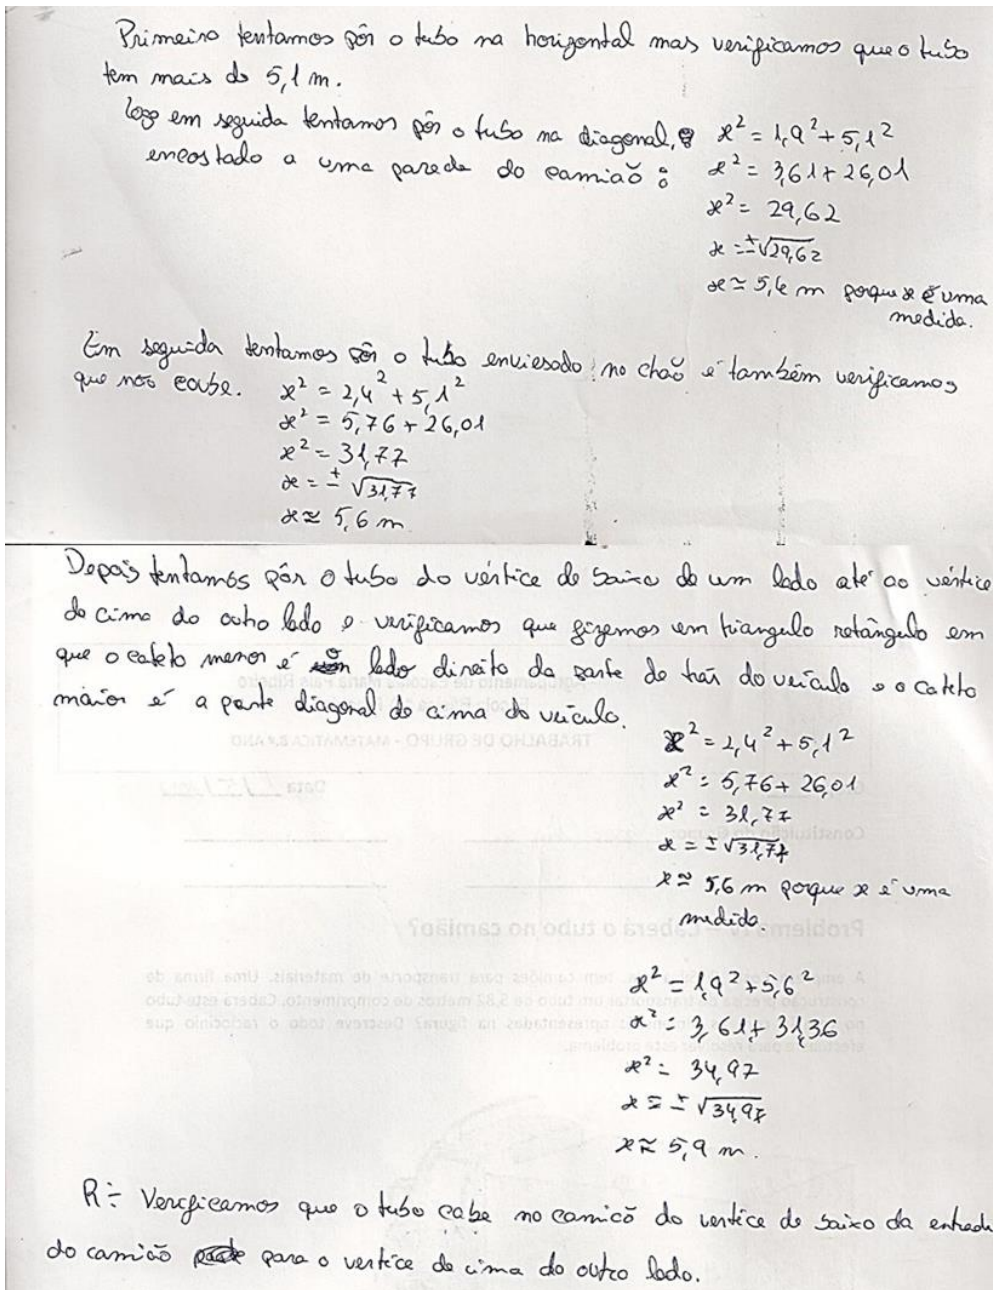 Primeiro tentamos pôr o tubo na horizontal mas verificamos que o tubo
tem mais do 5,1 m.
logo em seguida tentamos pôr o tubo na diagonal,
encostado a uma parede do camiaõ :
x² = 1,9² + 5,1²
x² = 3,61 + 26,01
x² = 29,62
x = ±√29,62
x ≃ 5,4 m porque x é uma
medida.
Em seguida tentamos pôr o tubo enviesado no chaõ e também verificamos
que não coube.
x² = 2,4² + 5,1²
x² = 5,76 + 26,01
x² = 31,77
x = ±√31,77
x ≈ 5,6 m
Depois tentamos pôr o tubo do vértice de baixo de um lado até ao vértice
de cima do outro lado e verificamos que fizemos um triangulo retângulo em
que o cateto menor é o lado direito da parte de trás do veículo e o cateto
maior é a parte diagonal de cima do veículo.
x² = 2,4² + 5,1²
x² = 5,76 + 26,01
x² = 31,77
x = ±√31,77
x ≈ 5,6 m porque x é uma
medida.
x² = 1,9² + 5,6²
x² = 3,61 + 31,36
x² = 34,97
x = ±√34,97
x ≈ 5,9 m.
R: Verificamos que o tubo cabe no camião do vertice de baixo da entrada
do camião para o vertice de cima do outro lado.
TRABALHO DE GRUPO - MATEMÁTICA 8.º ANO
Data
Constituição do Grupo:
Caberá o tubo no camião?